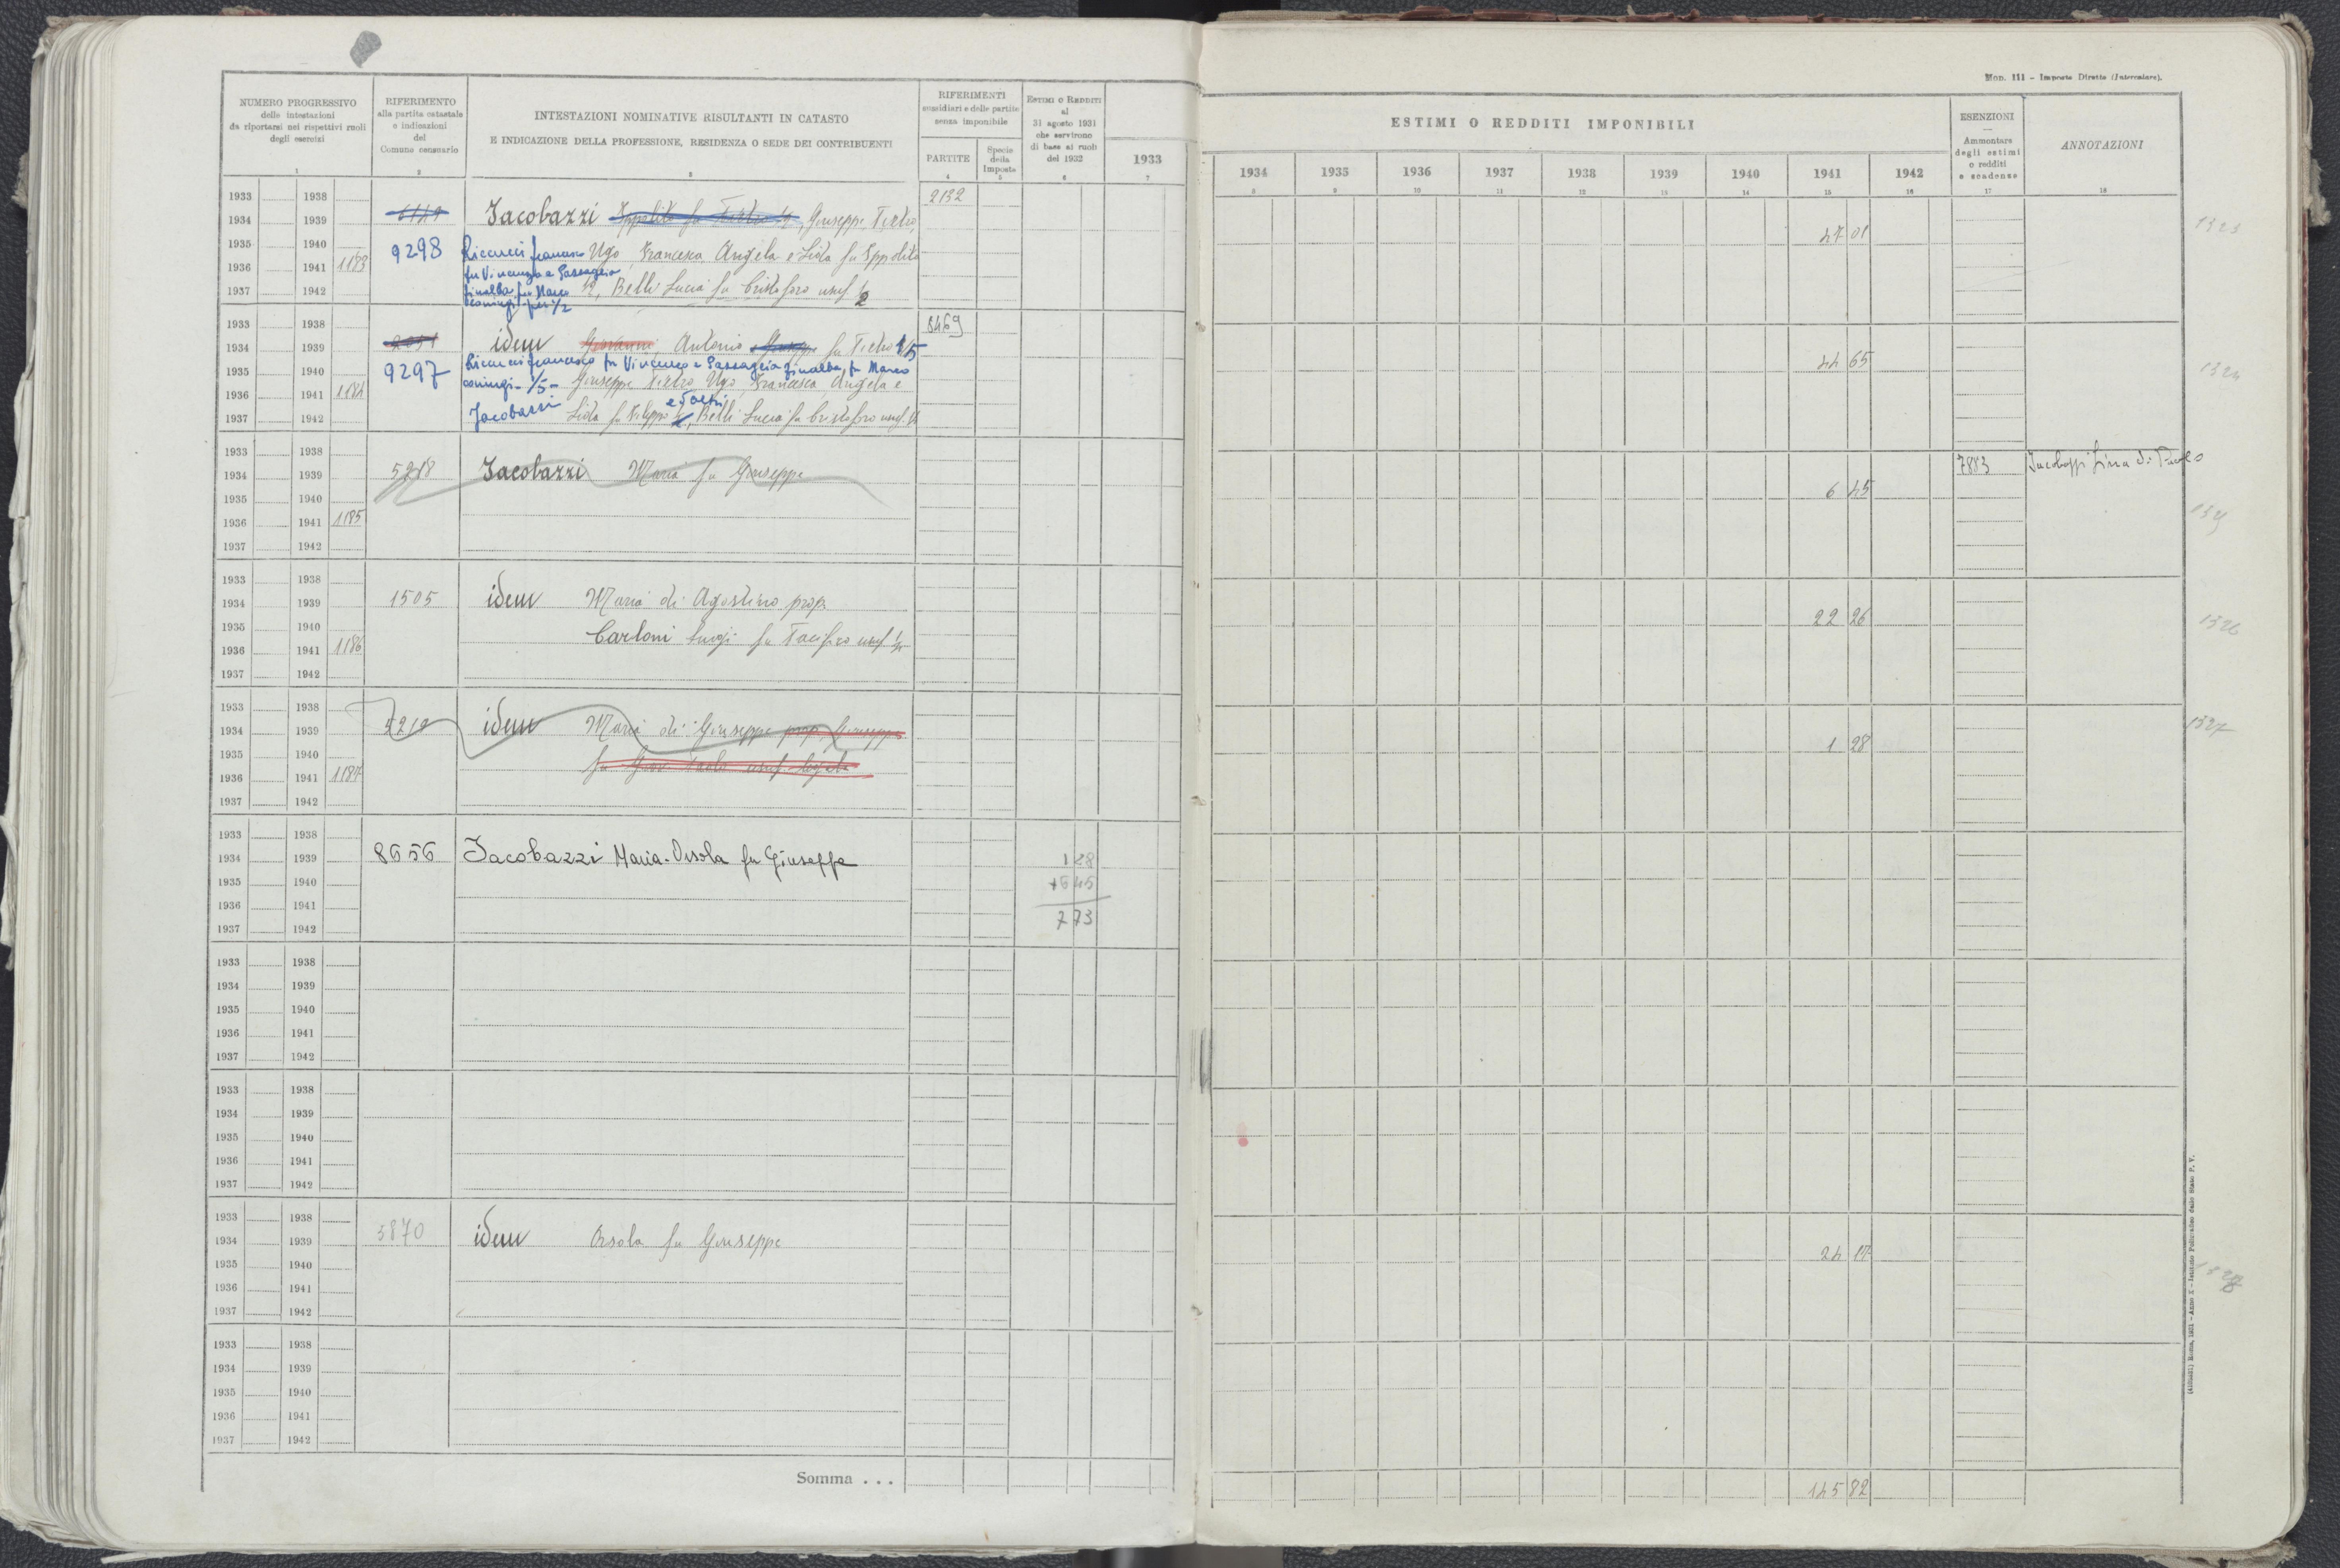 Mod. 111 - Imposte Dirette (Intercalare).
NUMERO PROGRESSIVO
delle intestazioni
da riportarsi nei rispettivi ruoli
degli esercizi
1
RIFERIMENTO
alla partita catastale
e indicazioni
del
Comune censuario
2
INTESTAZIONI NOMINATIVE RISULTANTI IN CATASTO
E INDICAZIONE DELLA PROFESSIONE, RESIDENZA O SEDE DEI CONTRIBUENTI
3
RIFERIMENTI
sussidiari e delle partite
senza imponibile
PARTITE
4
Specie
della
Imposta
5
ESTIMI O REDDITI
al
31 agosto 1931
che servirono
di base ai ruoli
del 1932
6
1933
7
ESTIMI O REDDITI IMPONIBILI
1934 1935 1936 1937 1938 1939 1940 1941 1942
8 9 10 11 12 13 14 15 16
ESENZIONI
Ammontare
degli estimi
o redditi
e scadenze
17
ANNOTAZIONI
18
1933 1938 2132
1934 1939 Jacobazzi Ippolito fu Pietro 1/2, Giuseppe, Pietro, 47 01
1935 1940 9298 Ricucci Francesco Ugo, Francesca, Angela e Lida fu Ippolito
1936 1941 1183 fu Vincenzo e Passaggia
1937 1942 Zinalba fu Marco 1/2, Belli Lucia fu Cristoforo usuf. 1/2
coniugi per 1/2
1933 1938 8469
1934 1939 idem Giovanni, Antonio e Giuseppe fu Pietro 1/5 44 65
Ricucci Francesco fu Vincenzo e Passaggia Zinalba fu Marco
1935 1940 9297 coniugi - 1/5 - Giuseppe Pietro, Ugo, Francesca, Angela e
1936 1941 1184 e altri
1937 1942 Jacobazzi Lida fu Filippo Belli Lucia fu Cristoforo usuf.
1933 1938 7883
1934 1939 5218 Jacobazzi Maria fu Giuseppe
1935 1940 6 45
1936 1941 1185
1937 1942
1933 1938
1934 1939 1505 idem Maria di Agostino prop.
1935 1940 22 26 1326
1936 1941 1186 Carloni Luigi fu Pacifico usuf.
1937 1942
1933 1938
1934 1939 5219 idem Maria di Giuseppe prop. Giuseppe 1327
1935 1940 1 28
1936 1941 1187 fu Giov. Paolo usuf. legale
1937 1942
1933 1938
1934 1939 8656 Jacobazzi Maria-Orsola fu Giuseppe 1 28
1935 1940 + 6 45
1936 1941 7 73
1937 1942
1933 1938
1934 1939
1935 1940
1936 1941
1937 1942
1933 1938
1934 1939
1935 1940
1936 1941
1937 1942
1933 1938
1934 1939 3870 idem Orsola fu Giuseppe 24 17
1935 1940
1936 1941 1328
1937 1942
1933 1938
1934 1939
1935 1940
1936 1941
1937 1942
Somma . . . 145 82